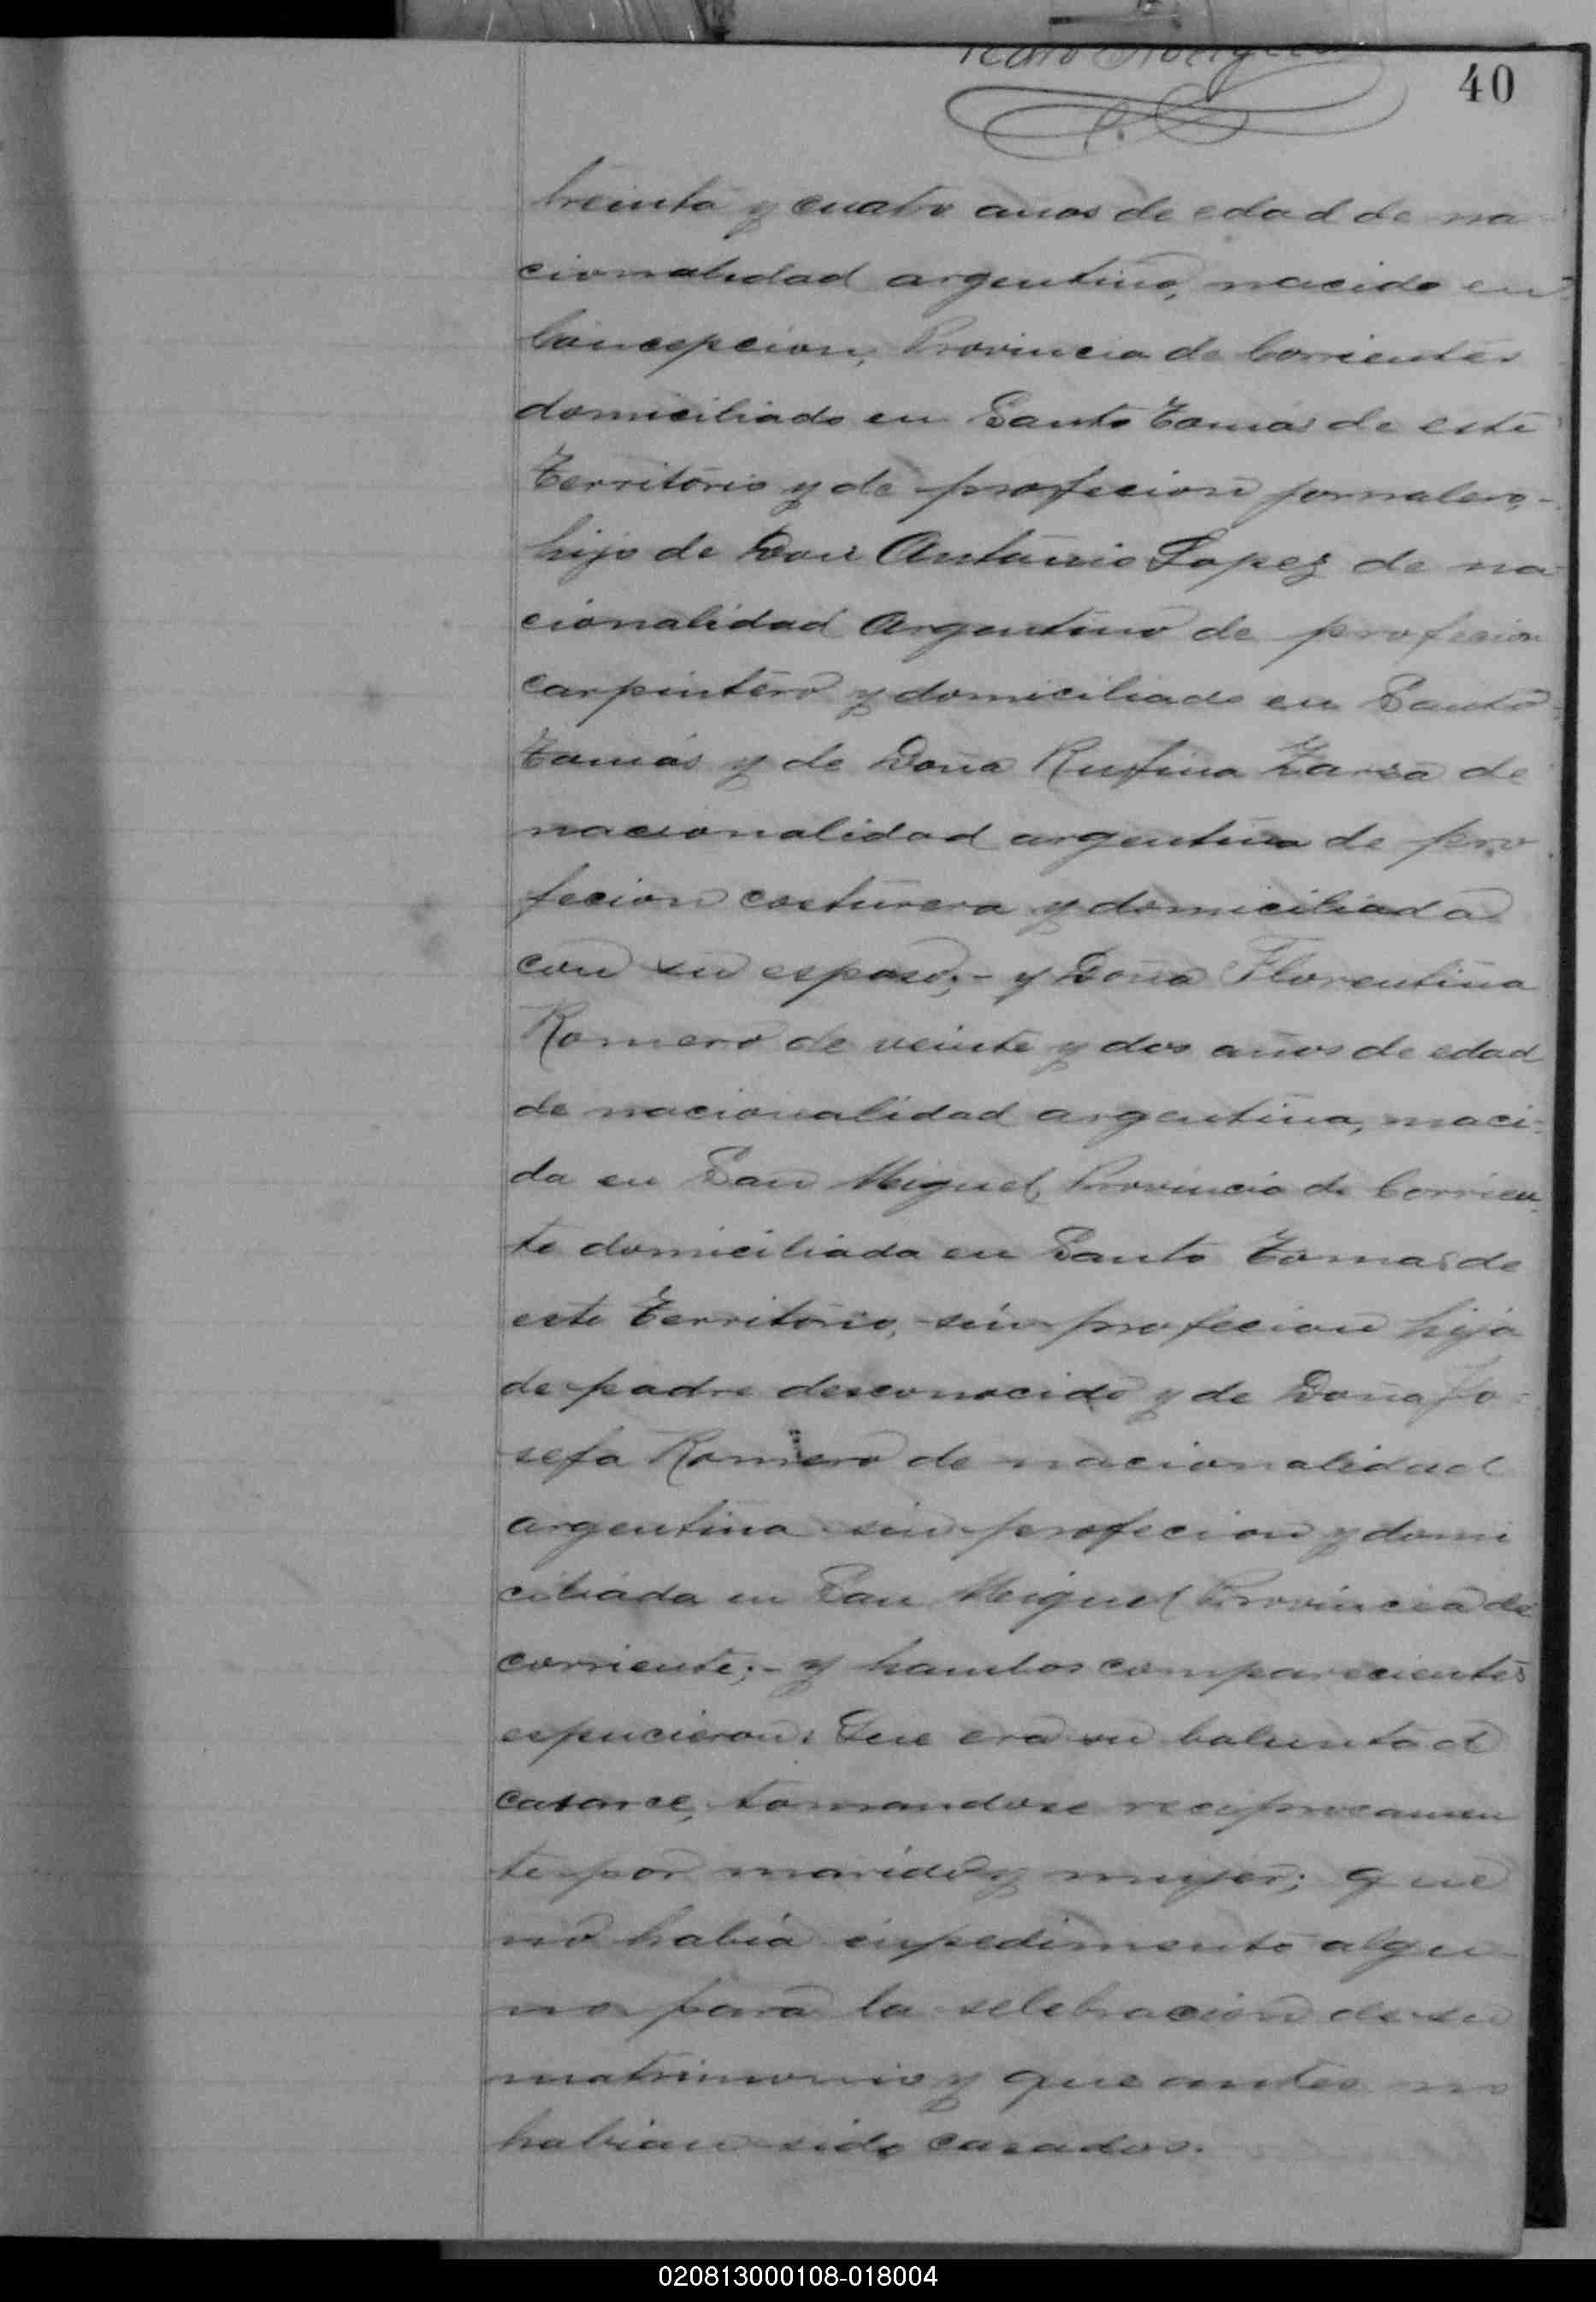 Pedro Rodriguez
40
treinta y cuatro anos de edad de na
cionalidad argentino, nacido en
Concepcion, Provincia de Corrientes
domiciliado en Santo Tomás de este
Territorio y de profecion jornalero,-
hijo de Don Antonio Lopez de na-
cionalidad Argentino de profecion
carpintero y domiciliado en Santo
Tomás y de Doña Rufina Zarza de
nacionalidad argentina de pro
fecion costurera y domiciliada
con su esposo;- y Doña Florentina
Romero de veinte y dos años de edad
de nacionalidad argentina, naci-
da en San Miguel, Provincia de Corrien
te domiciliada en Santo Tomas de
este Territorio, sin profecion hija
de padre desconocido y de Doña Jo-
sefa Romero de nacionalidad
argentina sin profecion y domi
ciliada en San Miguel Provincia de
corriente;- y hambos comparecientes
espucieron: Que era su boluntad
casarce, tomandose reciprocamen
te por marido y mujer; que
no habia inpedimento algu-
no para la selebracion de su
matrimonio y que antes no
habian sido casados.
020813000108-018004